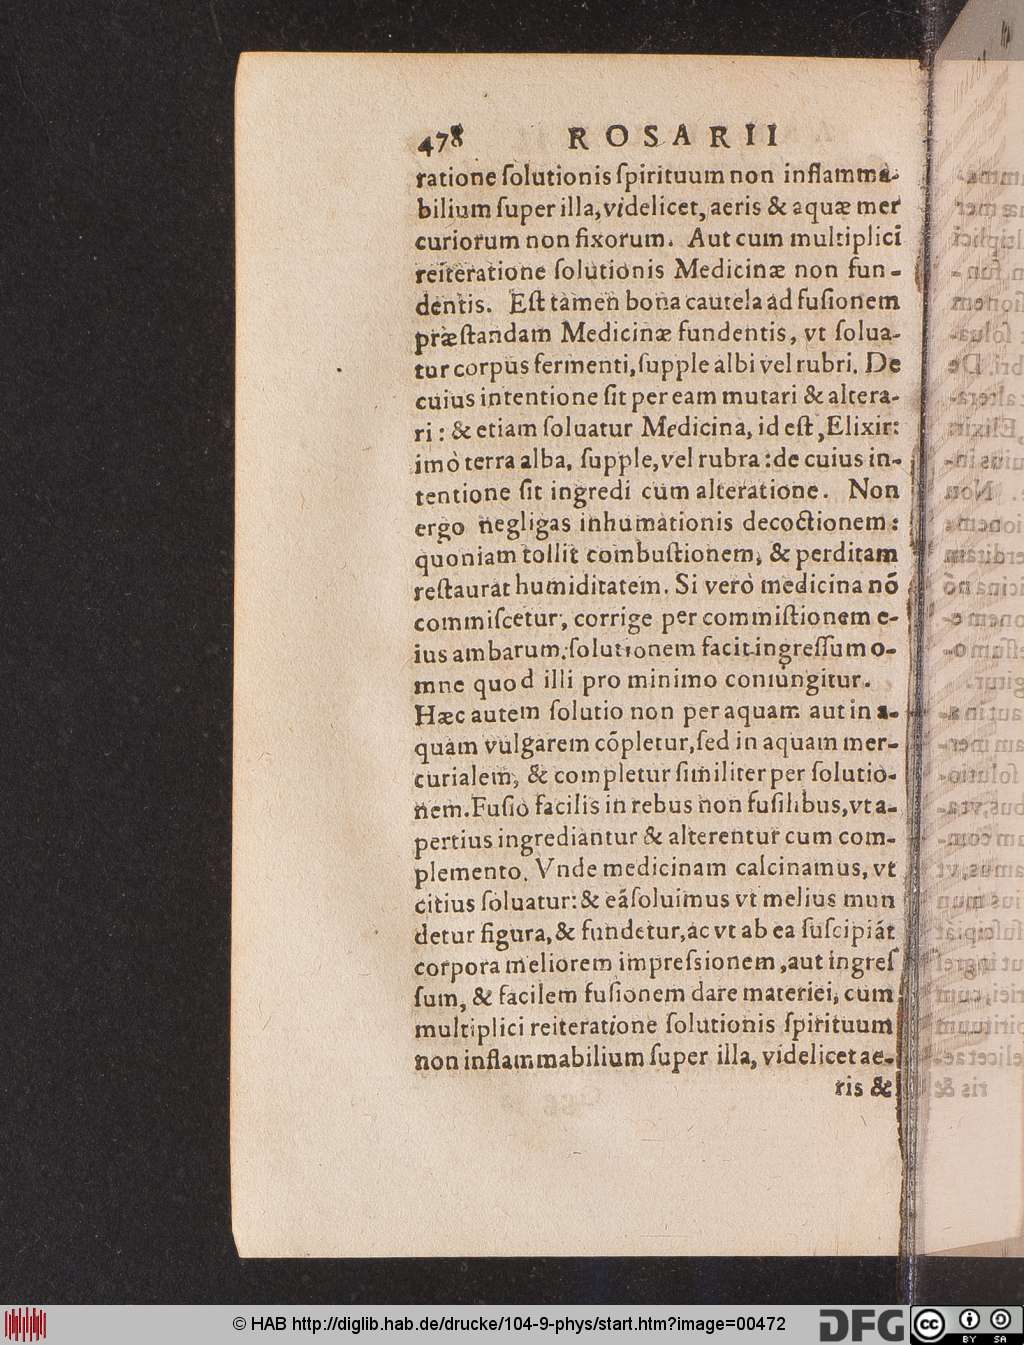 478 ROSARII
ratione ſolutionis ſpirituum non inflamma-
bilium ſuper illa, videlicet, aeris & aquæ mer
curiorum non fixorum. Aut cum multiplici
reiteratione ſolutionis Medicinæ non fun-
dentis. Eſt tamen bona cautela ad fuſionem
præſtandam Medicinæ fundentis, vt ſolua-
tur corpus fermenti, ſupple albi vel rubri. De
cuius intentione ſit per eam mutari & altera-
ri: & etiam ſoluatur Medicina, id eſt, Elixir:
imò terra alba, ſupple, vel rubra: de cuius in-
tentione ſit ingredi cum alteratione. Non
ergo negligas inhumationis decoctionem:
quoniam tollit combuſtionem, & perditam
reſtaurat humiditatem. Si verò medicina nõ
commiſcetur, corrige per commiſtionem e-
ius ambarum: ſolutionem facit ingreſſum o-
mne quod illi pro minimo coniungitur.
Hæc autem ſolutio non per aquam aut in a-
quam vulgarem cõpletur, ſed in aquam mer-
curialem, & completur ſimiliter per ſolutio-
nem. Fuſio facilis in rebus non fuſilibus, vt a-
pertius ingrediantur & alterentur cum com-
plemento. Vnde medicinam calcinamus, vt
citius ſoluatur: & eã ſoluimus vt melius mun
detur figura, & fundetur, ac vt ab ea ſuſcipiãt
corpora meliorem impreſsionem, aut ingreſ
ſum, & facilem fuſionem dare materiei, cum
multiplici reiteratione ſolutionis ſpirituum
non inflammabilium ſuper illa, videlicet ae-
ris &
© HAB http://diglib.hab.de/drucke/104-9-phys/start.htm?image=00472
DFG
cc BY SA